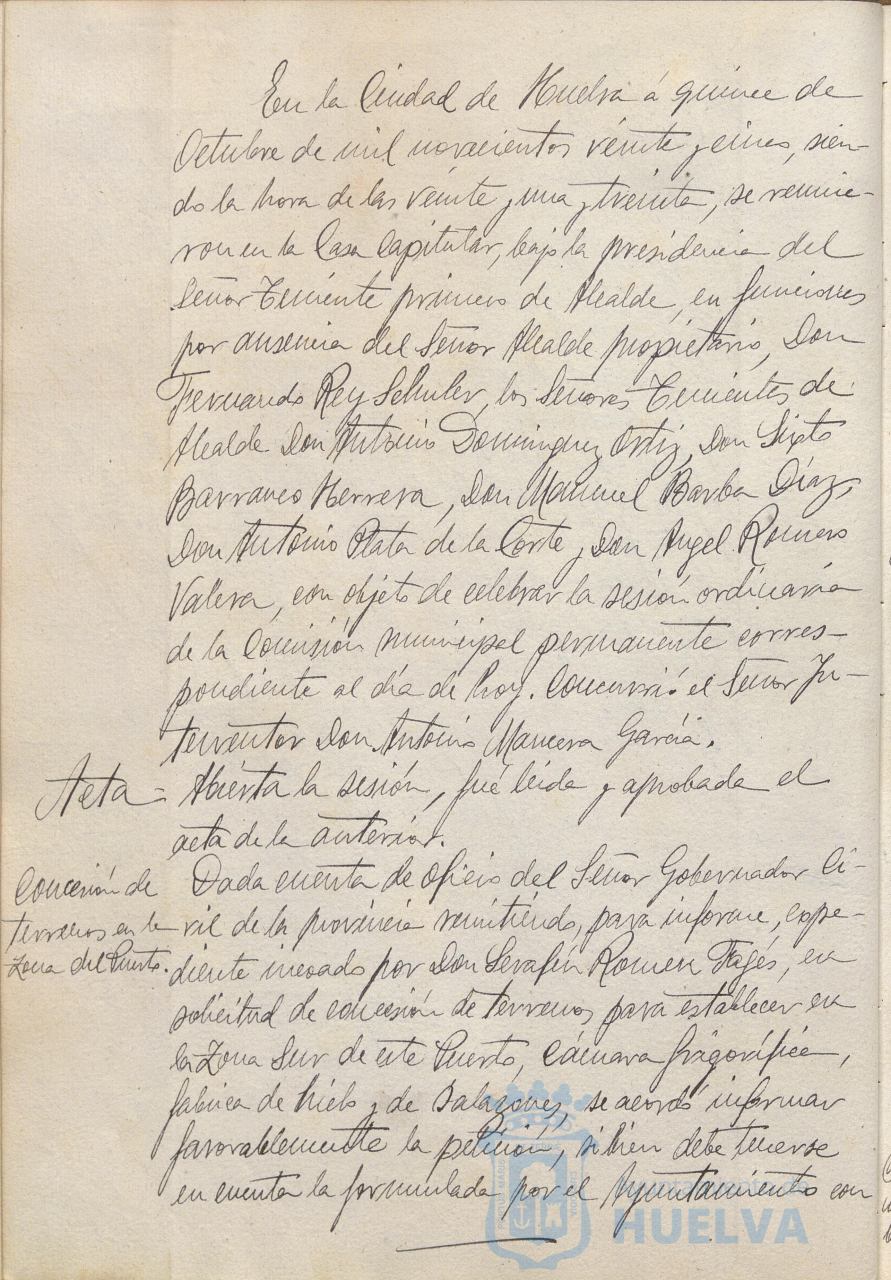 En la Ciudad de Huelva á quince de
Octubre de mil novecientos veinte y cinco, sien-
do la hora de las veinte y una y treinta, se reunie-
ron en la Casa Capitular, bajo la presidencia del
Señor Teniente primero de Alcalde, en funciones
por ausencia del Señor Alcalde propietario, Don
Fernando Rey Schuler, los Señores Tenientes de
Alcalde Don Antonio Dominguez Ortiz, Don Sixto
Barranco Herrera, Don Manuel Barba Díaz,
Don Antonio Plata de la Corte y Don Angel Romero
Vallera, con objeto de celebrar la sesión ordinaria
de la Comisión municipal permanente corres-
pondiente al día de hoy. Concurrió el Señor In-
terventor Don Antonio Mancera García.
Acta = Abierta la sesión, fué leida y aprobada el
acta de la anterior.
Concesión de
terrenos en la
zona del Puerto.
Dada cuenta de oficio del Señor Gobernador Ci-
vil de la provincia remitiendo, para informe, expe-
diente incoado por Don Serafín Romeu Fagés, en
solicitud de concesión de terrenos para establecer en
la Zona Sur de este Puerto, Cámara frigorífica,
fabrica de hielo y de Salazones, se acordó informar
favorablemente la petición, si bien debe tenerse
en cuenta la formulada por el Ayuntamiento con
Ayuntamiento de
HUELVA